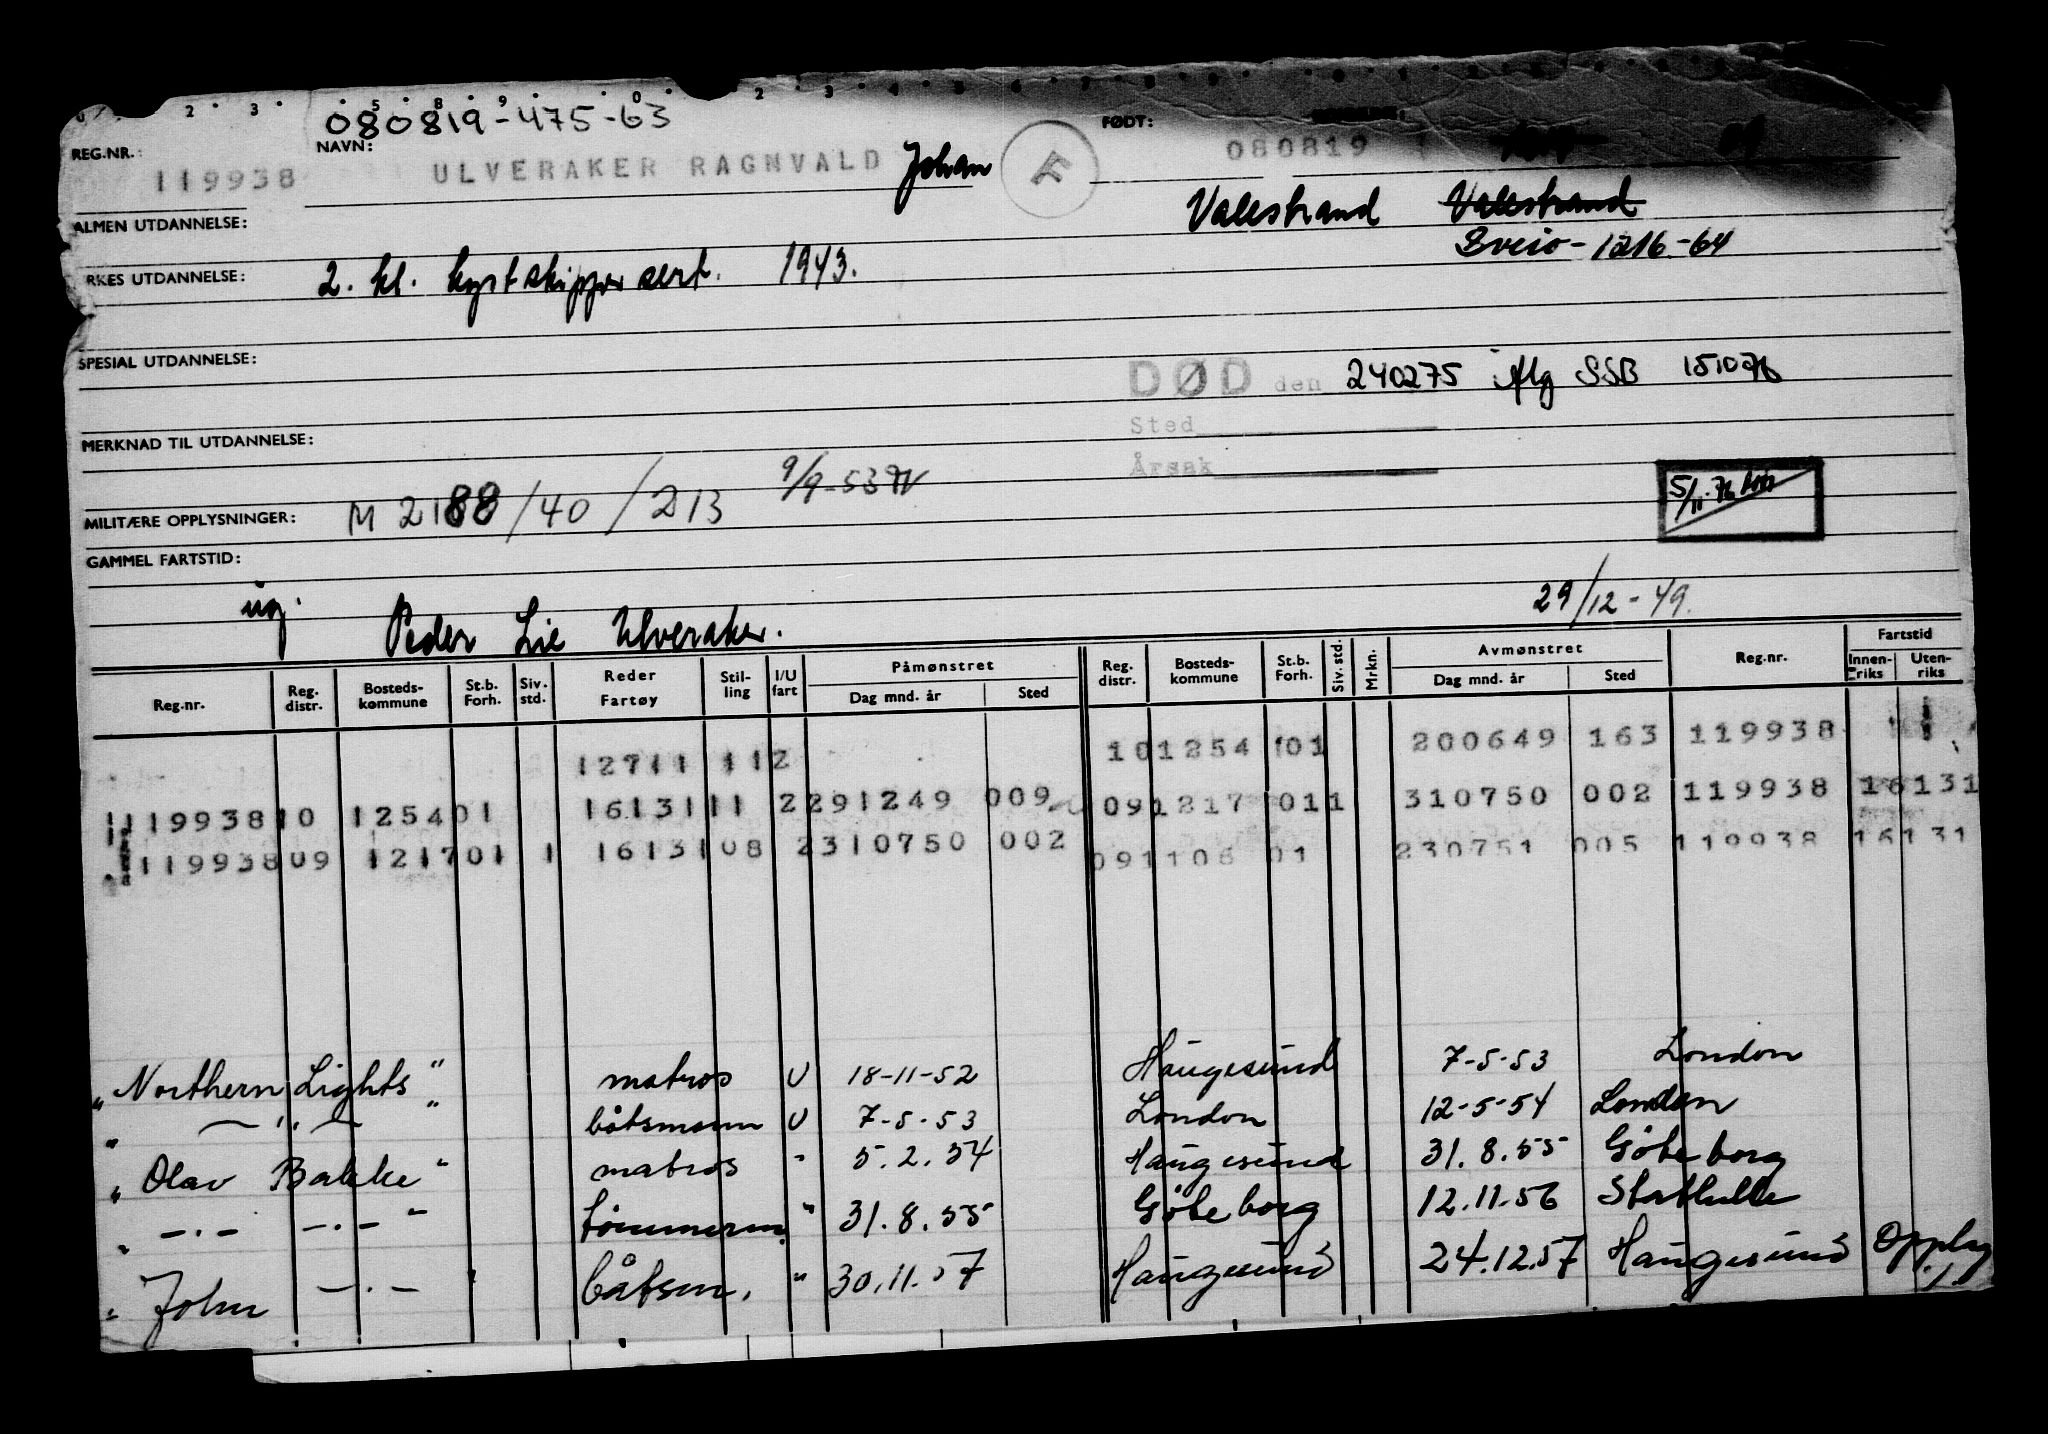 080819-475-63
REG.NR.: NAVN: FØDT:
119938 ULVERAKER RAGNVALD Johan 080819
ALMEN UTDANNELSE: Valestrand Valestrand
Sveio - 1216 - 64
RKES UTDANNELSE: 2. kl. kystskipper sert. 1943.
SPESIAL UTDANNELSE:
DØD den 240275 SSB 151076
Sted
MERKNAD TIL UTDANNELSE: Årsak
MILITÆRE OPPLYSNINGER: M 2188/40/213 9/9-53
5/11-76
GAMMEL FARTSTID:
ug. Peder Lie Ulveraker. 29/12-49.
Reg.nr. Reg. distr. Bosteds-kommune St.b. Forh. Siv. std. Reder Fartøy Stil-ling I/U fart Påmønstret Dag mnd. år Sted Reg. distr. Bosteds-kommune St.b. Forh. Siv. std. Mrkn. Avmønstret Dag mnd. år Sted Reg.nr. Fartstid Innen-riks Uten-riks
12711 112 101254 01 200649 163 119938
119938 10 1254 01 16131 11 2 291249 009 091217 01 1 310750 002 119938 16131
119938 09 1217 01 1 16131 08 2 310750 002 091106 01 230751 005 119938 16131
" Northern Lights " matros U 18-11-52 Haugesund 7-5-53 London
" — " — " båtsmann U 7-5-53 London 12-5-54 London
" Olav Bakke " matros " 5.2.54 Haugesund 31.8.55 Göteborg
" —.— —.— " tömmerm. " 31.8.55 Göteborg 12.11.56 Stathelle
" John —.— " båtsm. " 30.11.57 Haugesund 24.12.57 Haugesund